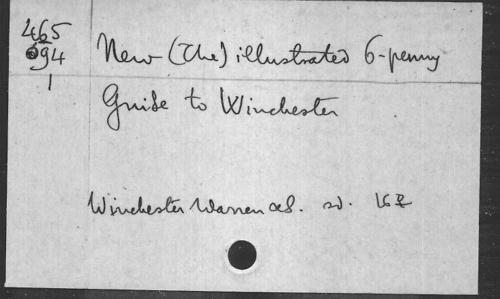 465
94
1
New (The) illustrated 6-penny
Guide to Winchester
Winchester Warren &S. sd. 16